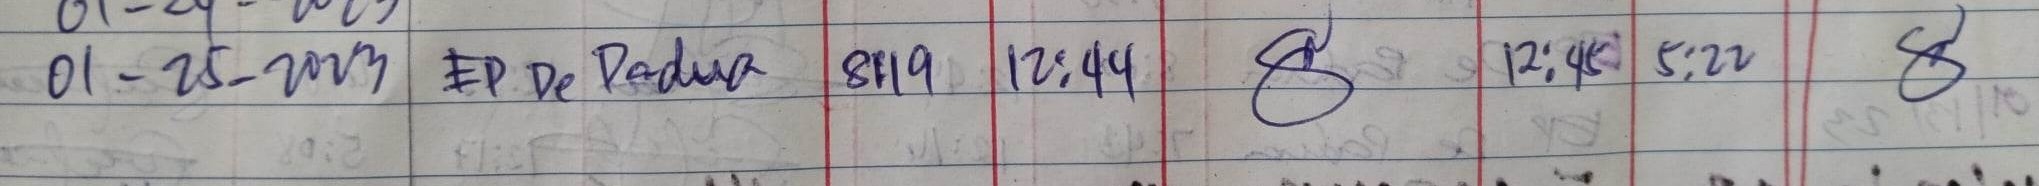 01-24-2023
01-25-2023 EP De Padua 8:19 12:44 12:45 5:22